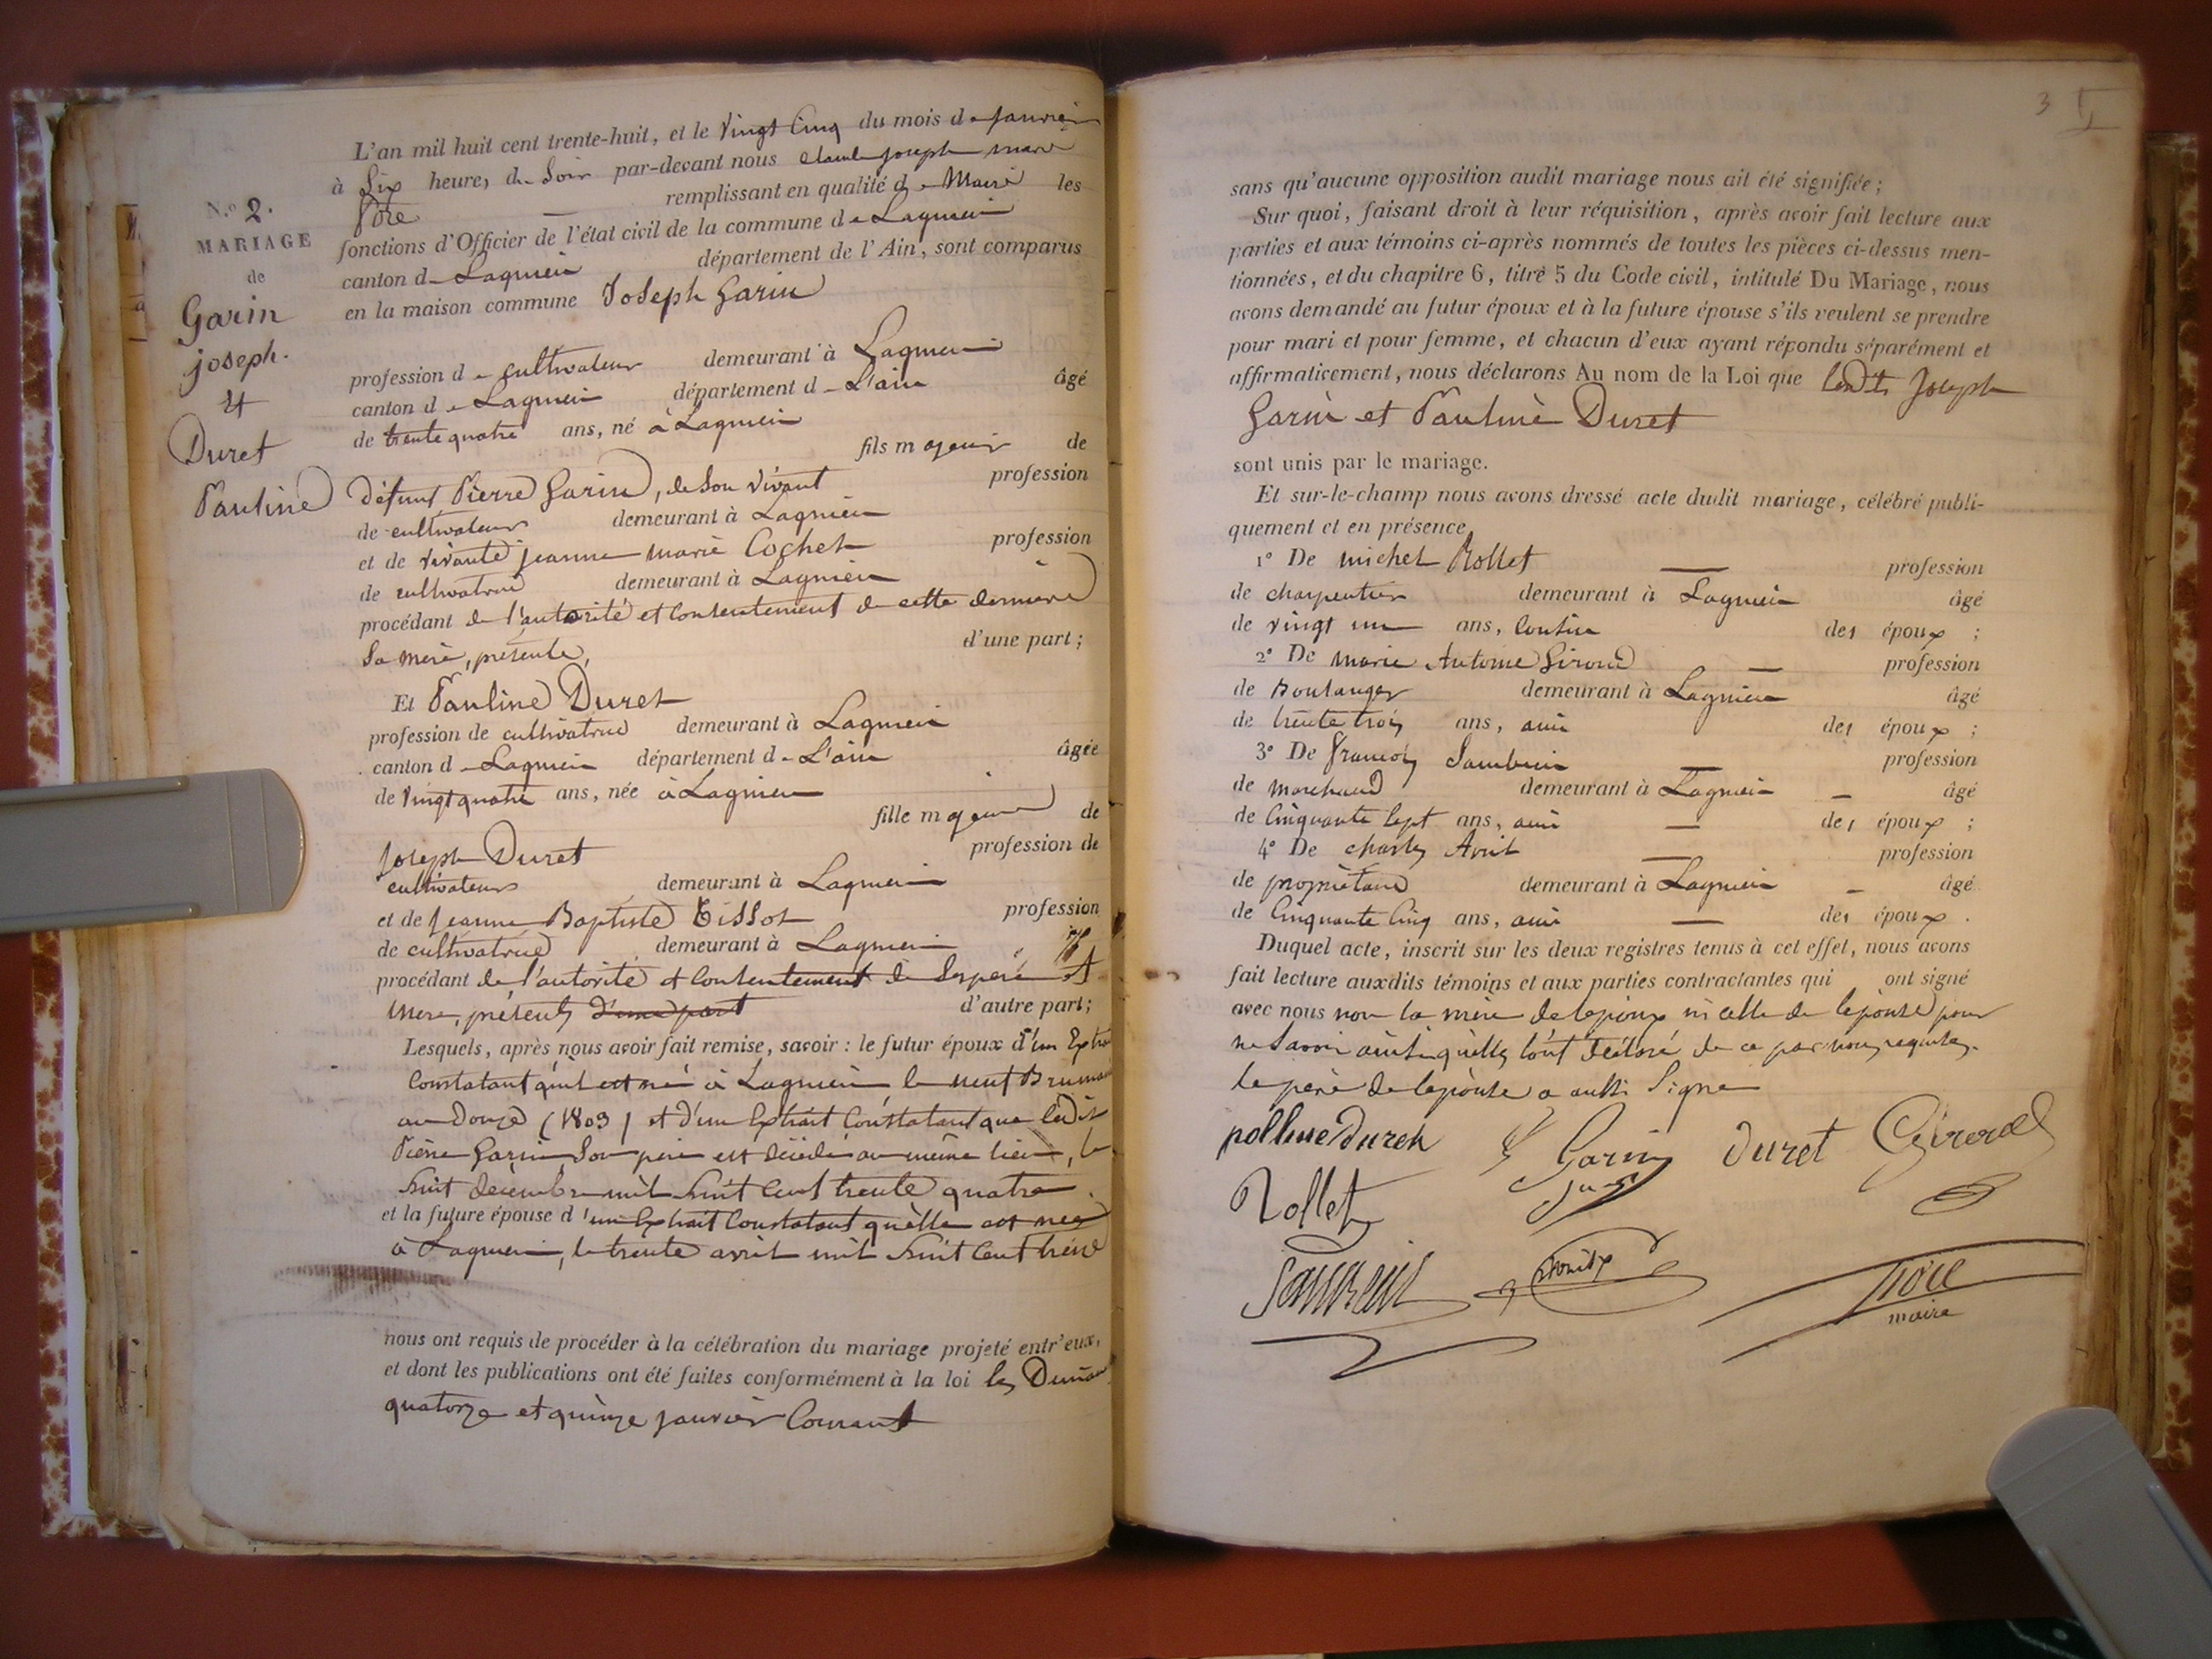 N.º 2.
MARIAGE
de
Garin
joseph.
et
Duret
Pauline
L'an mil huit cent trente-huit, et le vingt cinq du mois de janvier
à Six heures du Soir par-devant nous claude joseph marie
remplissant en qualité de Maire les
fonctions d'Officier de l'état civil de la commune de Lagnieu
canton de Lagnieu département de l'Ain, sont comparus
en la maison commune Joseph Garin
profession de cultivateur demeurant à Lagnieu
canton de Lagnieu département de L'ain âgé
de trente quatre ans, né à Lagnieu
fils majeur de
défunt Pierre Garin, de Son vivant profession
de cultivateur demeurant à Lagnieu
et de vivante jeanne marie Cochet profession
de cultivatrice demeurant à Lagnieu
procédant de l'autorité et Consentement de cette dernière
Sa mère, présente, d'une part;
Et Pauline Duret
profession de cultivatrice demeurant à Lagnieu
canton de Lagnieu département de L'ain âgée
de vingt quatre ans, née à Lagnieu
fille majeure de
joseph Duret profession de
cultivateur demeurant à Lagnieu
et de jeanne Baptiste Tissot profession
de cultivatrice demeurant à Lagnieu
procédant de l'autorité et Consentement de Ses père et
mère, présents d'une part d'autre part;
Lesquels, après nous avoir fait remise, savoir : le futur époux d'un Extrait
Constatant qu'il est né à Lagnieu le neuf Brumaire
an Douze (1803) et d'un Extrait Constatant que ledit
Pierre Garin Son père est décédé au même lieu, le
huit décembre mil huit Cent trente quatre
et la future épouse d'un Extrait Constatant qu'elle est née
à Lagnieu, le trente avril mil huit Cent treize
nous ont requis de procéder à la célébration du mariage projeté entr'eux,
et dont les publications ont été faites conformément à la loi les Dimanches
quatorze et quinze janvier Courant
3
sans qu'aucune opposition audit mariage nous ait été signifiée;
Sur quoi, faisant droit à leur réquisition, après avoir fait lecture aux
parties et aux témoins ci-après nommés de toutes les pièces ci-dessus men-
tionnées, et du chapitre 6, titre 5 du Code civil, intitulé Du Mariage, nous
avons demandé au futur époux et à la future épouse s'ils veulent se prendre
pour mari et pour femme, et chacun d'eux ayant répondu séparément et
affirmativement, nous déclarons Au nom de la Loi que lesdits Joseph
Garin et Pauline Duret
sont unis par le mariage.
Et sur-le-champ nous avons dressé acte dudit mariage, célébré publi-
quement et en présence,
1º De michel Rollet profession
de charpentier demeurant à Lagnieu âgé
de vingt un ans, Cousin des époux ;
2º De marie Antoine Girord profession
de Boulanger demeurant à Lagnieu âgé
de trente trois ans, ami des époux ;
3º De françois profession
de marchand demeurant à Lagnieu âgé
de Cinquante Sept ans, ami des époux ;
4º De charles profession
de propriétaire demeurant à Lagnieu âgé
de Cinquante Cinq ans, ami des époux .
Duquel acte, inscrit sur les deux registres tenus à cet effet, nous avons
fait lecture auxdits témoins et aux parties contractantes qui ont signé
avec nous non la mère de lepoux ni celle de lepouse pour
ne Savoir ainsi qu'elles l'ont déclaré de ce par nous requises.
le père de lepouse a aussi Signé
polline dureh Garin duret Girord
Rollet
maire